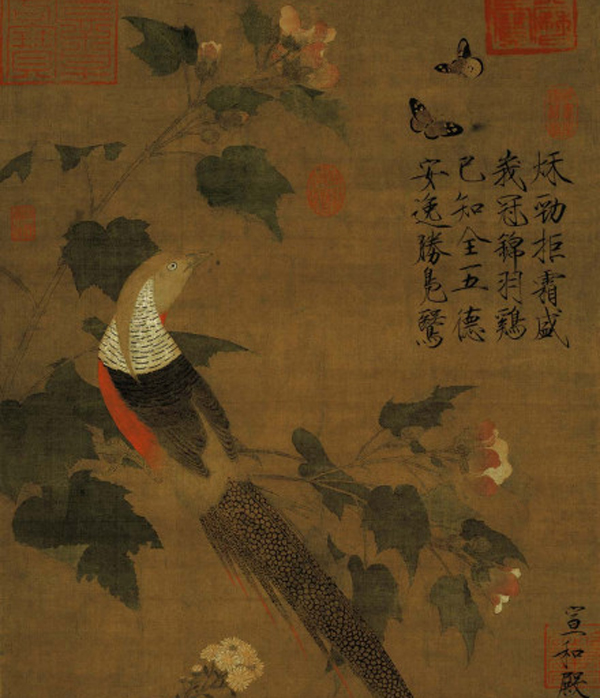 秋勁拒霜盛
峩冠錦羽鷄
已知全五德
安逸勝鳧鷖
宣和殿